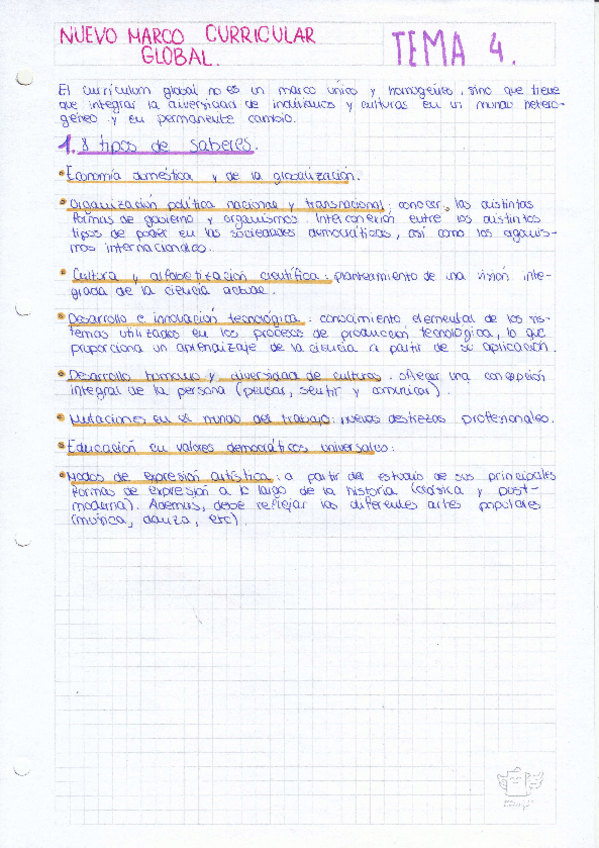 NUEVO MARCO CURRICULAR
GLOBAL.
TEMA 4.
El currículum global no es un marco único y homogéneo, sino que tiene
que integrar la diversidad de individuos y culturas en un mundo hetero-
géneo y en permanente cambio.
1. 8 tipos de saberes.
• Economía doméstica y de la globalización.
• Organización política nacional y transnacional; conocer, las distintas
formas de gobierno y organismos. Interconexión entre los distintos
tipos de poder en las sociedades democráticas, así como los organis-
mos internacionales.
• Cultura y alfabetización científica: planteamiento de una visión inte-
grada de la ciencia actual.
• Desarrollo e innovación tecnológica: conocimiento elemental de los sis-
temas utilizados en los procesos de producción tecnológica, lo que
proporciona un aprendizaje de la ciencia a partir de su aplicación.
• Desarrollo humano y diversidad de culturas: ofrecer una concepción
integral de la persona (pensar, sentir y comunicar).
• Mutaciones en el mundo del trabajo: nuevas destrezas profesionales.
• Educación en valores democráticos universales:
• Modos de expresión artística: a partir del estudio de sus principales
formas de expresión a lo largo de la historia (clásica y post-
moderna). Además, debe reflejar las diferentes artes populares
(música, danza, etc).